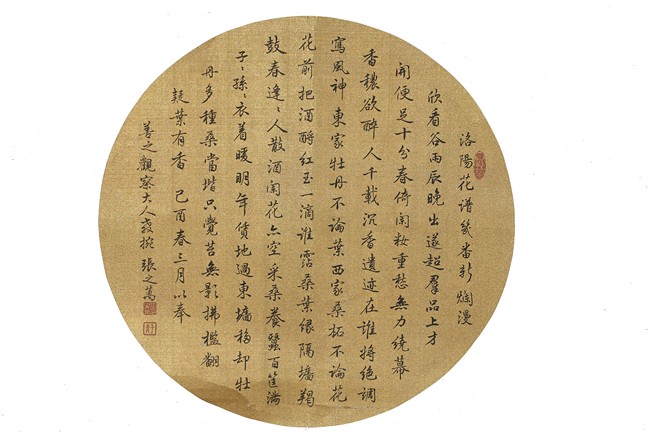 洛陽花谱幾番新爛漫
欣看谷雨辰晚出遂超羣品上才
開便足十分春倚闌妝重愁無力繞幕
香穠欲醉人千載沉香遺迹在誰將絕調
寫風神東家牡丹不論葉西家桑柘不論花
花前把酒酹紅玉一滴誰霑桑葉緑隔墻羯
鼓春逢〻人散酒闌花亦空采桑養蠶百筐滿
子〻孫〻衣着暖明年賃地過東墻移却牡
丹多種桑當堦只覺苔無影拂檻翻
疑葉有香 己酉春三月以奉
善之觀察大人教 張之萬